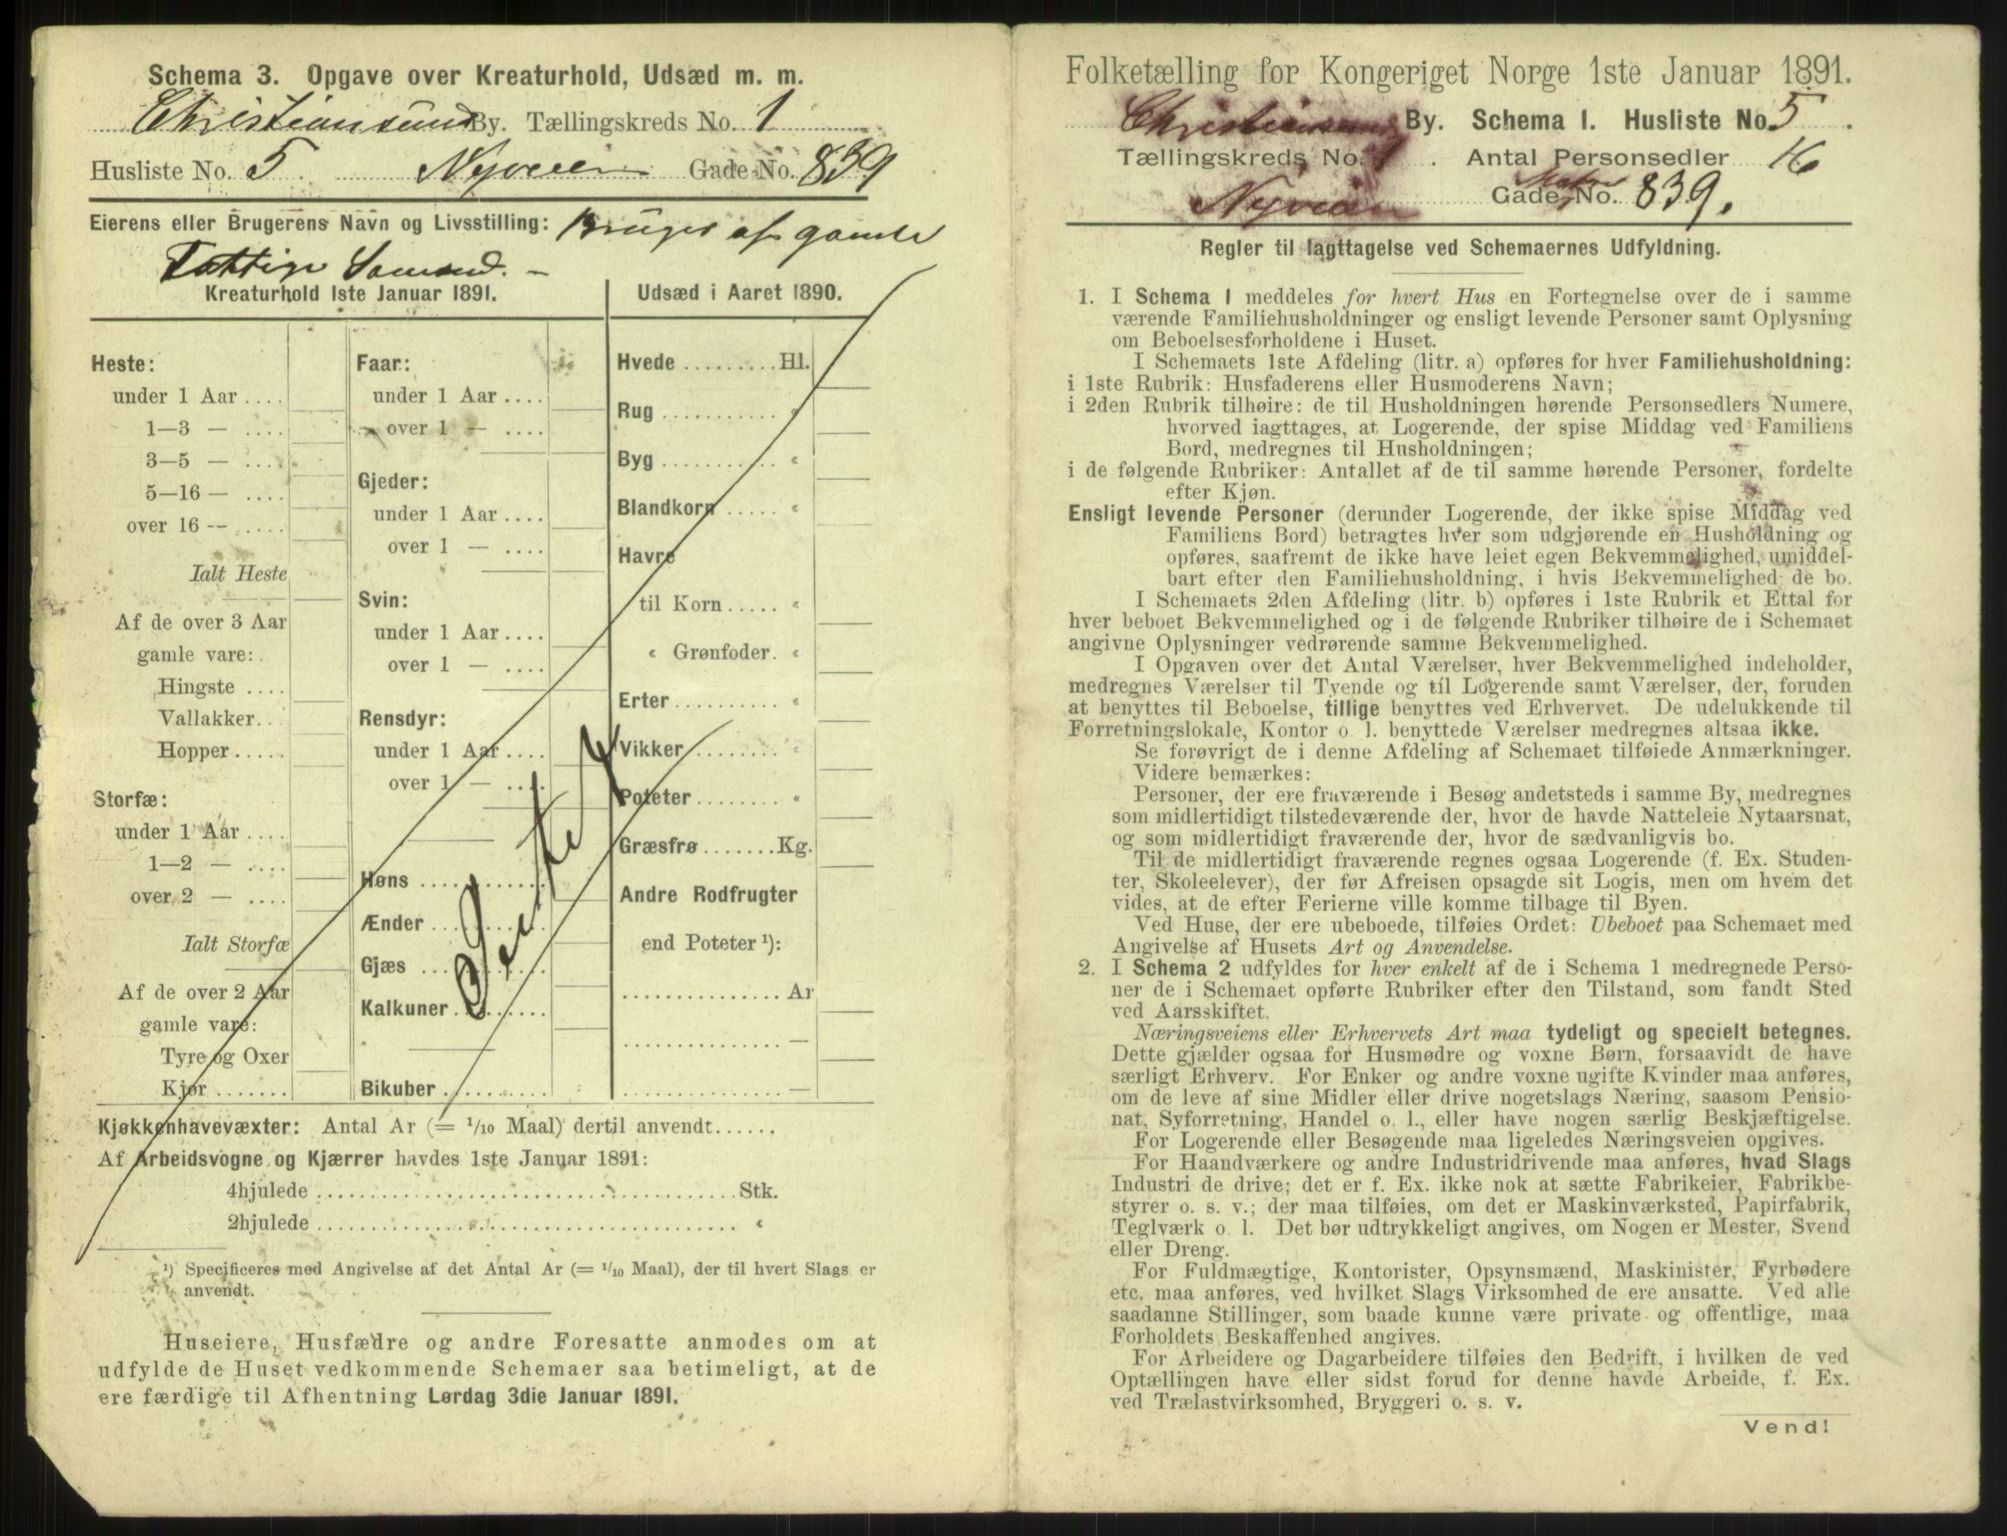 Schema 3. Opgave over Kreaturhold, Udsæd m. m.
Christiansund By. Tællingskreds No. 1
Husliste No. 5. Nyveien Gade No. 839
Eierens eller Brugerens Navn og Livsstilling: Bruges af gamle
Fattige Lemmer. –
Kreaturhold 1ste Januar 1891.
Heste:
under 1 Aar ....
1—3 — ....
3—5 — ....
5—16 — ....
over 16 -- .....
Ialt Heste
Af de over 3 Aar
gamle vare:
Hingste ....
Vallakker...
Hopper .....
Storfæ:
under 1 Aar ....
1—2 — ....
over 2 — ....
Ialt Storfæ
Af de over 2 Aar
gamle vare:
Tyre og Oxer
Kjør .......
Faar:
under 1 Aar ....
over 1 — ....
Gjeder:
under 1 Aar ....
over 1 — ....
Svin:
under 1 Aar ....
over 1 — ....
Rensdyr:
under 1 Aar ....
over 1 — ....
Høns ............
Ænder ...........
Gjæs ............
Kalkuner .........
Bikuber ..........
Udsæd i Aaret 1890.
Hvede ......... Hl.
Rug ........... «
Byg ........... «
Blandkorn ..... «
Havre
til Korn ..... «
« Grønfoder. «
Erter .......... «
Vikker ......... «
Poteter ........ «
Græsfrø ....... Kg.
Andre Rodfrugter
end Poteter ¹):
............... Ar
............... —
............... —
Kjøkkenhavevæxter: Antal Ar (= 1/10 Maal) dertil anvendt......
Af Arbeidsvogne og Kjærrer havdes 1ste Januar 1891:
4hjulede ........................................ Stk.
2hjulede ........................................ «
¹) Specificeres med Angivelse af det Antal Ar (= 1/10 Maal), der til hvert Slags er
anvendt.
Huseiere, Husfædre og andre Foresatte anmodes om at
udfylde de Huset vedkommende Schemaer saa betimeligt, at de
ere færdige til Afhentning Lørdag 3die Januar 1891.
Folketælling for Kongeriget Norge 1ste Januar 1891.
Christiansund By. Schema 1. Husliste No 5.
Tællingskreds No. 1. Antal Personsedler 16
Nyveien Gade Matr No. 839.
Regler til Iagttagelse ved Schemaernes Udfyldning.
1. I Schema 1 meddeles for hvert Hus en Fortegnelse over de i samme
værende Familiehusholdninger og ensligt levende Personer samt Oplysning
om Beboelsesforholdene i Huset.
I Schemaets 1ste Afdeling (litr. a) opføres for hver Familiehusholdning:
i 1ste Rubrik: Husfaderens eller Husmoderens Navn;
i 2den Rubrik tilhøire: de til Husholdningen hørende Personsedlers Numere,
hvorved iagttages, at Logerende, der spise Middag ved Familiens
Bord, medregnes til Husholdningen;
i de følgende Rubriker: Antallet af de til samme hørende Personer, fordelte
efter Kjøn.
Ensligt levende Personer (derunder Logerende, der ikke spise Middag ved
Familiens Bord) betragtes hver som udgjørende en Husholdning og
opføres, saafremt de ikke have leiet egen Bekvemmelighed, umiddel-
bart efter den Familiehusholdning, i hvis Bekvemmelighed de bo.
I Schemaets 2den Afdeling (litr. b) opføres i 1ste Rubrik et Ettal for
hver beboet Bekvemmelighed og i de følgende Rubriker tilhøire de i Schemaet
angivne Oplysninger vedrørende samme Bekvemmelighed.
I Opgaven over det Antal Værelser, hver Bekvemmelighed indeholder,
medregnes Værelser til Tyende og til Logerende samt Værelser, der, foruden
at benyttes til Beboelse, tillige benyttes ved Erhvervet. De udelukkende til
Forretningslokale, Kontor o. l. benyttede Værelser medregnes altsaa ikke.
Se forøvrigt de i denne Afdeling af Schemaet tilføiede Anmærkninger.
Videre bemærkes:
Personer, der ere fraværende i Besøg andetsteds i samme By, medregnes
som midlertidigt tilstedeværende der, hvor de havde Natteleie Nytaarsnat,
og som midlertidigt fraværende der, hvor de sædvanligvis bo.
Til de midlertidigt fraværende regnes ogsaa Logerende (f. Ex. Studen-
ter, Skoleelever), der før Afreisen opsagde sit Logis, men om hvem det
vides, at de efter Ferierne ville komme tilbage til Byen.
Ved Huse, der ere ubeboede, tilføies Ordet: Ubeboet paa Schemaet med
Angivelse af Husets Art og Anvendelse.
2. I Schema 2 udfyldes for hver enkelt af de i Schema 1 medregnede Perso-
ner de i Schemaet opførte Rubriker efter den Tilstand, som fandt Sted
ved Aarsskiftet.
Næringsveiens eller Erhvervets Art maa tydeligt og specielt betegnes.
Dette gjælder ogsaa for Husmødre og voxne Børn, forsaavidt de have
særligt Erhverv. For Enker og andre voxne ugifte Kvinder maa anføres,
om de leve af sine Midler eller drive nogetslags Næring, saasom Pensio-
nat, Syforretning, Handel o. l., eller have nogen særlig Beskjæftigelse.
For Logerende eller Besøgende maa ligeledes Næringsveien opgives.
For Haandværkere og andre Industridrivende maa anføres, hvad Slags
Industri de drive; det er f. Ex. ikke nok at sætte Fabrikeier, Fabrikbe-
styrer o. s. v.; der maa tilføies, om det er Maskinværksted, Papirfabrik,
Teglværk o. l. Det bør udtrykkeligt angives, om Nogen er Mester, Svend
eller Dreng.
For Fuldmægtige, Kontorister, Opsynsmænd, Maskinister, Fyrbødere
etc. maa anføres, ved hvilket Slags Virksomhed de ere ansatte. Ved alle
saadanne Stillinger, som baade kunne være private og offentlige, maa
Forholdets Beskaffenhed angives.
For Arbeidere og Dagarbeidere tilføies den Bedrift, i hvilken de ved
Optællingen have eller sidst forud for denne havde Arbeide, f. Ex.
ved Trælastvirksomhed, Bryggeri o. s. v.
Vend!